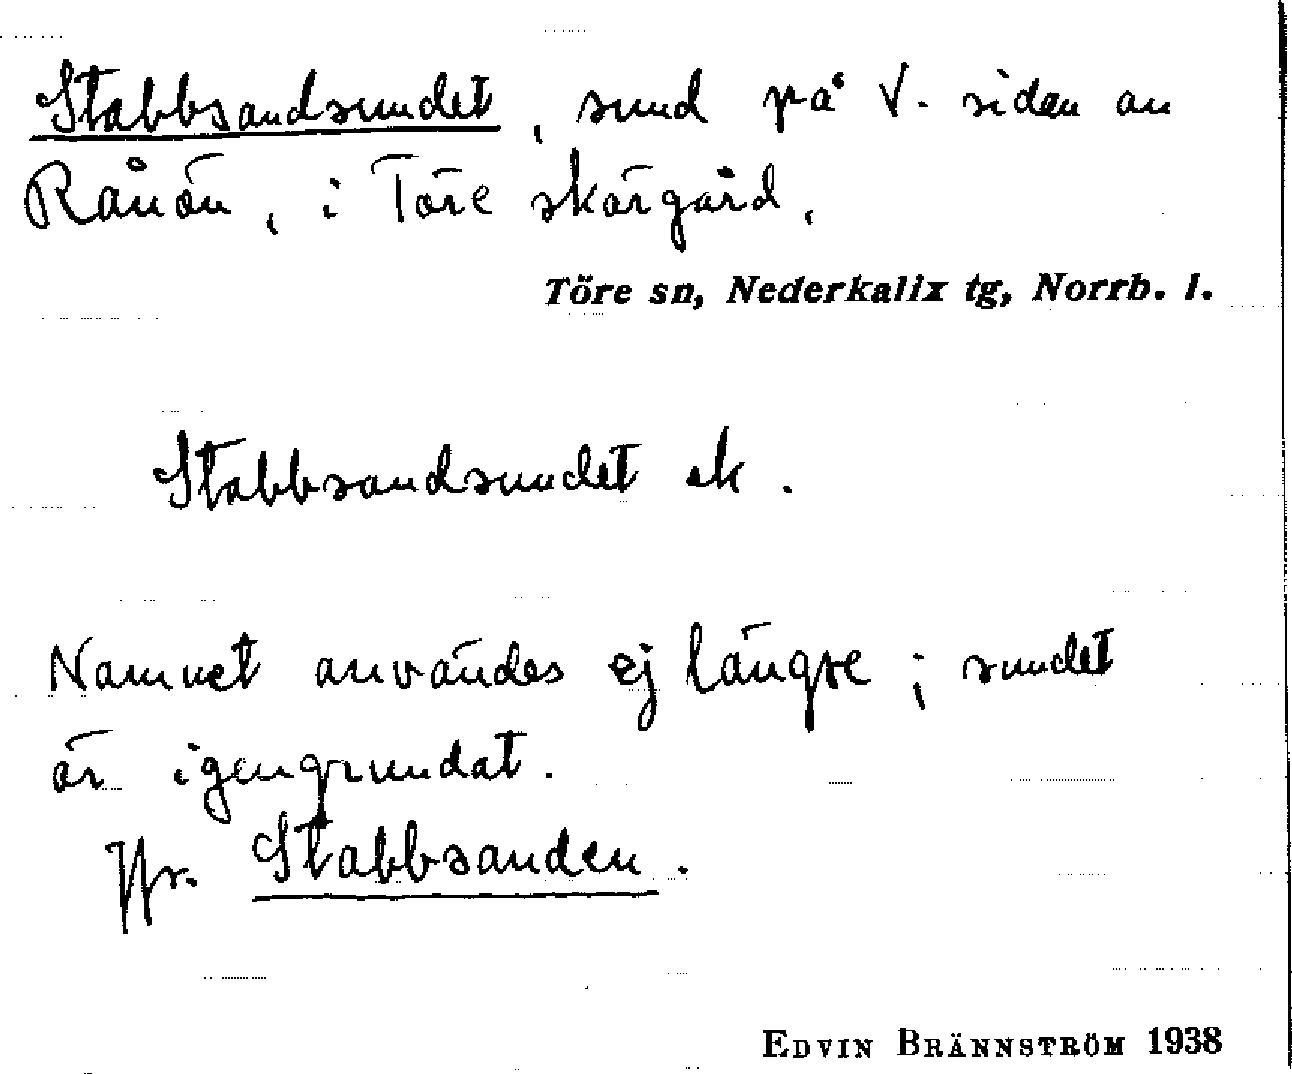 Stabbsandsundet, sund på V. siden av
Rånön, i Töre skärgård.
Töre sn, Nederkalix tg, Norrb. l.
Stabbsandsundet ek.
Namnet användes ej längre; sundet
är igengrundat.
Jfr. Stabbsanden.
EDVIN BRÄNNSTRÖM 1938